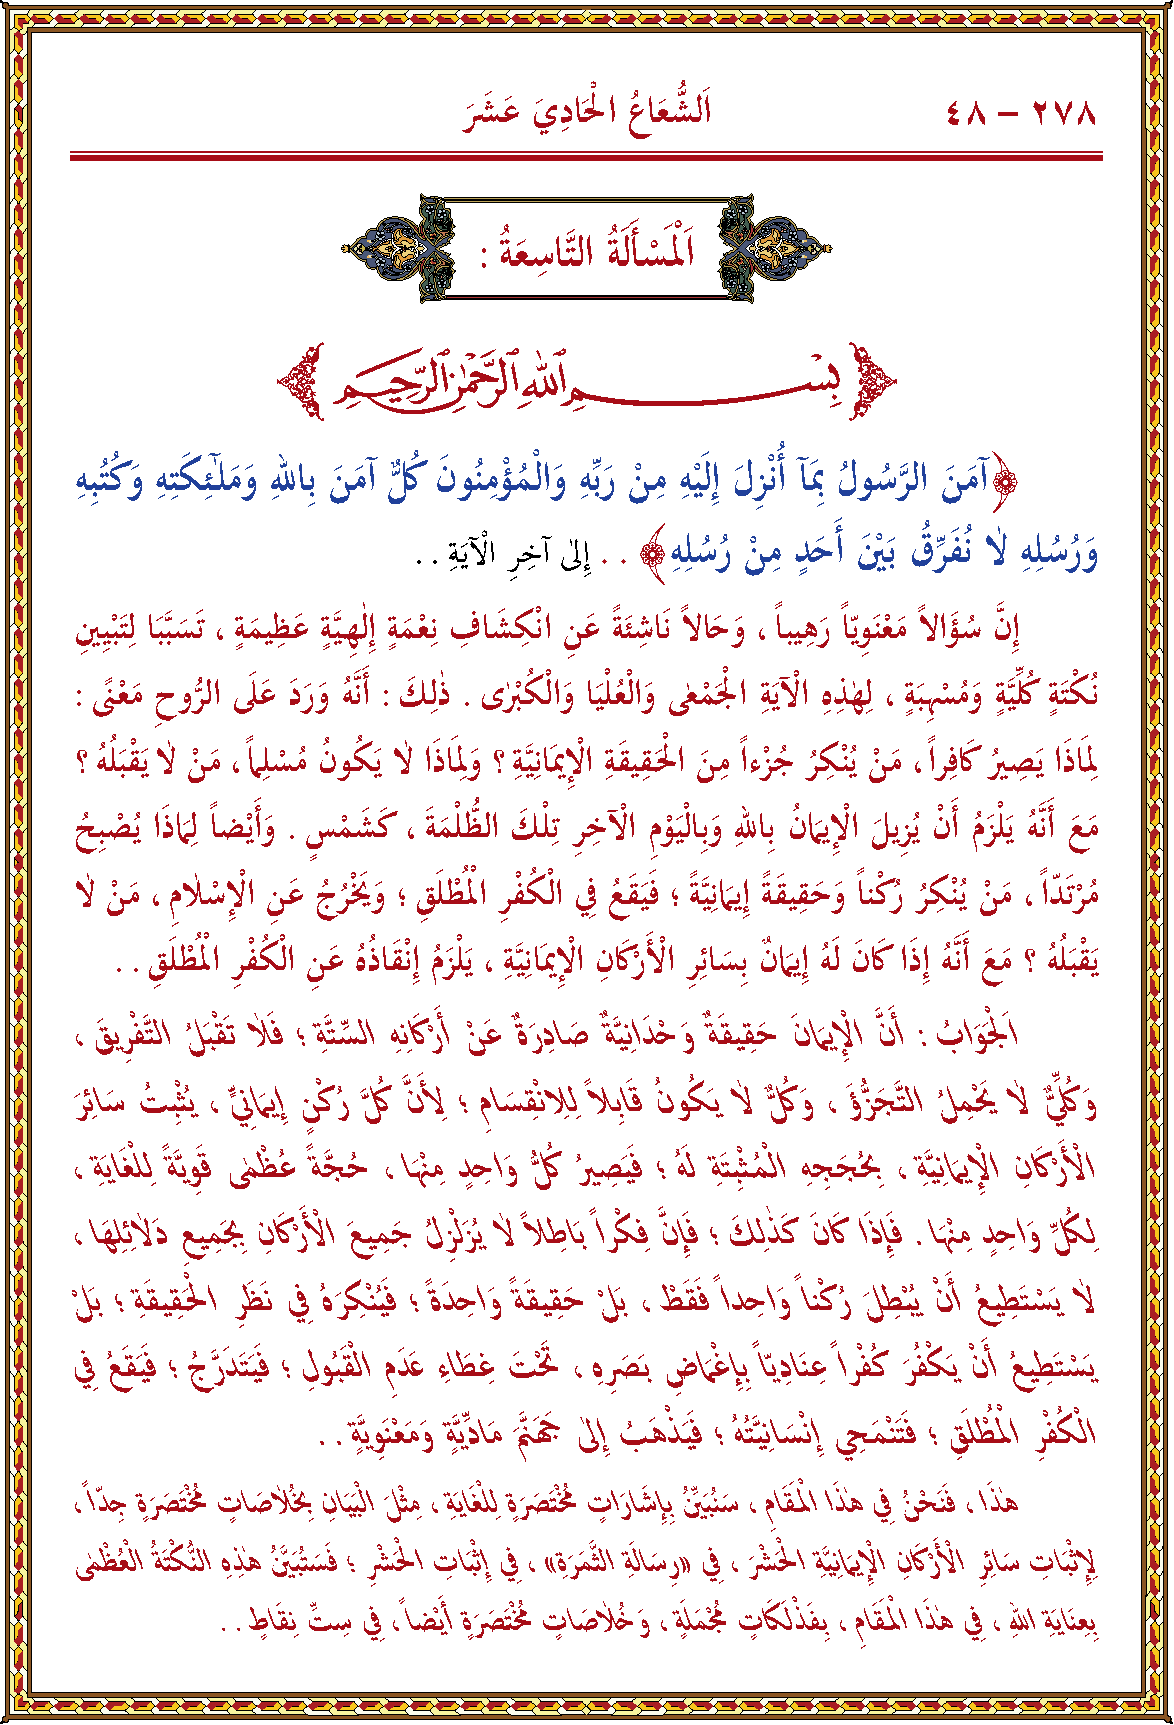 ٢٧٨ – ٤٨ اَلشُّعَاعُ الْحَادِيَ عَشَرَ
اَلْمَسْأَلَةُ التَّاسِعَةُ :
بِسْمِ اللهِ الرَّحْمٰنِ الرَّحِيمِ
﴿آمَنَ الرَّسُولُ بِمَآ أُنْزِلَ إِلَيْهِ مِنْ رَبِّهِ وَالْمُؤْمِنُونَ كُلٌّ آمَنَ بِاللهِ وَمَلٰٓئِكَتِهِ وَكُتُبِهِ
وَرُسُلِهِ لاٰ نُفَرِّقُ بَيْنَ أَحَدٍ مِنْ رُسُلِهِ﴾ . . إِلٰى آخِرِ الْآيَةِ . .
إِنَّ سُؤَالاً مَعْنَوِيّاً رَهِيباً ، وَحَالاً نَاشِئَةً عَنِ انْكِشَافِ نِعْمَةٍ إِلٰهِيَّةٍ عَظِيمَةٍ ، تَسَبَّبَا لِتَبْيِينِ
نُكْتَةٍ كُلِّيَّةٍ وَمُسْهِبَةٍ ، لِهٰذِهِ الْآيَةِ الْجَمْعٰى وَالْعُلْيَا وَالْكُبْرٰى . ذٰلِكَ : أَنَّهُ وَرَدَ عَلَى الرُّوحِ مَعْنًى :
لِمَاذَا يَصِيرُ كَافِراً ، مَنْ يُنْكِرُ جُزْءاً مِنَ الْحَقِيقَةِ الْإِيمَانِيَّةِ ؟ وَلِمَاذَا لاٰ يَكُونُ مُسْلِماً ، مَنْ لاٰ يَقْبَلُهُ ؟
مَعَ أَنَّهُ يَلْزَمُ أَنْ يُزِيلَ الْإِيمَانُ بِاللهِ وَبِالْيَوْمِ الْآخِرِ تِلْكَ الظُّلْمَةَ ، كَشَمْسٍ . وَأَيْضاً لِمَاذَا يُصْبِحُ
مُرْتَدّاً ، مَنْ يُنْكِرُ رُكْناً وَحَقِيقَةً إِيمَانِيَّةً ؛ فَيَقَعُ فِي الْكُفْرِ الْمُطْلَقِ ؛ وَيَخْرُجُ عَنِ الْإِسْلاٰمِ ، مَنْ لاٰ
يَقْبَلُهُ ؟ مَعَ أَنَّهُ إِذَا كَانَ لَهُ إِيمَانٌ بِسَائِرِ الْأَرْكَانِ الْإِيمَانِيَّةِ ، يَلْزَمُ إِنْقَاذُهُ عَنِ الْكُفْرِ الْمُطْلَقِ . .
اَلْجَوَابُ : أَنَّ الْإِيمَانَ حَقِيقَةٌ وَحْدَانِيَّةٌ صَادِرَةٌ عَنْ أَرْكَانِهِ السِّتَّةِ ؛ فَلاٰ تَقْبَلُ التَّفْرِيقَ ،
وَكُلِّيٌّ لاٰ يَحْمِلُ التَّجَزُّؤَ ، وَكُلٌّ لاٰ يَكُونُ قَابِلاً لِلاِنْقِسَامِ ؛ لِأَنَّ كُلَّ رُكْنٍ إِيمَانِيٍّ ، يُثْبِتُ سَائِرَ
الْأَرْكَانِ الْإِيمَانِيَّةِ ، بِحُجَجِهِ الْمُثْبِتَةِ لَهُ ؛ فَيَصِيرُ كُلُّ وَاحِدٍ مِنْهَا ، حُجَّةً عُظْمٰى قَوِيَّةً لِلْغَايَةِ ،
لِكُلِّ وَاحِدٍ مِنْهَا . فَإِذَا كَانَ كَذٰلِكَ ؛ فَإِنَّ فِكْراً بَاطِلاً لاٰ يُزَلْزِلُ جَمِيعَ الْأَرْكَانِ بِجَمِيعِ دَلاٰئِلِهَا ،
لاٰ يَسْتَطِيعُ أَنْ يُبْطِلَ رُكْناً وَاحِداً فَقَطْ ، بَلْ حَقِيقَةً وَاحِدَةً ؛ فَيُنْكِرَهُ فِي نَظَرِ الْحَقِيقَةِ ؛ بَلْ
يَسْتَطِيعُ أَنْ يَكْفُرَ كُفْراً عِنَادِيّاً بِإِغْمَاضِ بَصَرِهِ ، تَحْتَ غِطَاءِ عَدَمِ الْقَبُولِ ؛ فَيَتَدَرَّجُ ؛ فَيَقَعُ فِي
الْكُفْرِ الْمُطْلَقِ ؛ فَتَنْمَحِي إِنْسَانِيَّتُهُ ؛ فَيَذْهَبُ إِلٰى جَهَنَّمَ مَادِّيَّةٍ وَمَعْنَوِيَّةٍ . .
هٰذَا ، فَنَحْنُ فِي هٰذَا الْمَقَامِ ، سَنُبَيِّنُ بِإِشَارَاتٍ مُخْتَصَرَةٍ لِلْغَايَةِ ، مِثْلَ الْبَيَانِ بِخُلاٰصَاتٍ مُخْتَصَرَةٍ جِدّاً ،
لِإِثْبَاتِ سَائِرِ الْأَرْكَانِ الْإِيمَانِيَّةِ الْحَشْرَ ، فِي «رِسَالَةِ الثَّمَرَةِ» ، فِي إِثْبَاتِ الْحَشْرِ ؛ فَسَتُبَيَّنُ هٰذِهِ النُّكْتَةُ الْعُظْمٰى
بِعِنَايَةِ اللهِ ، فِي هٰذَا الْمَقَامِ ، بِفَذْلَكَاتٍ مُجْمَلَةٍ ، وَخُلاٰصَاتٍ مُخْتَصَرَةٍ أَيْضاً ، فِي سِتِّ نِقَاطٍ . .